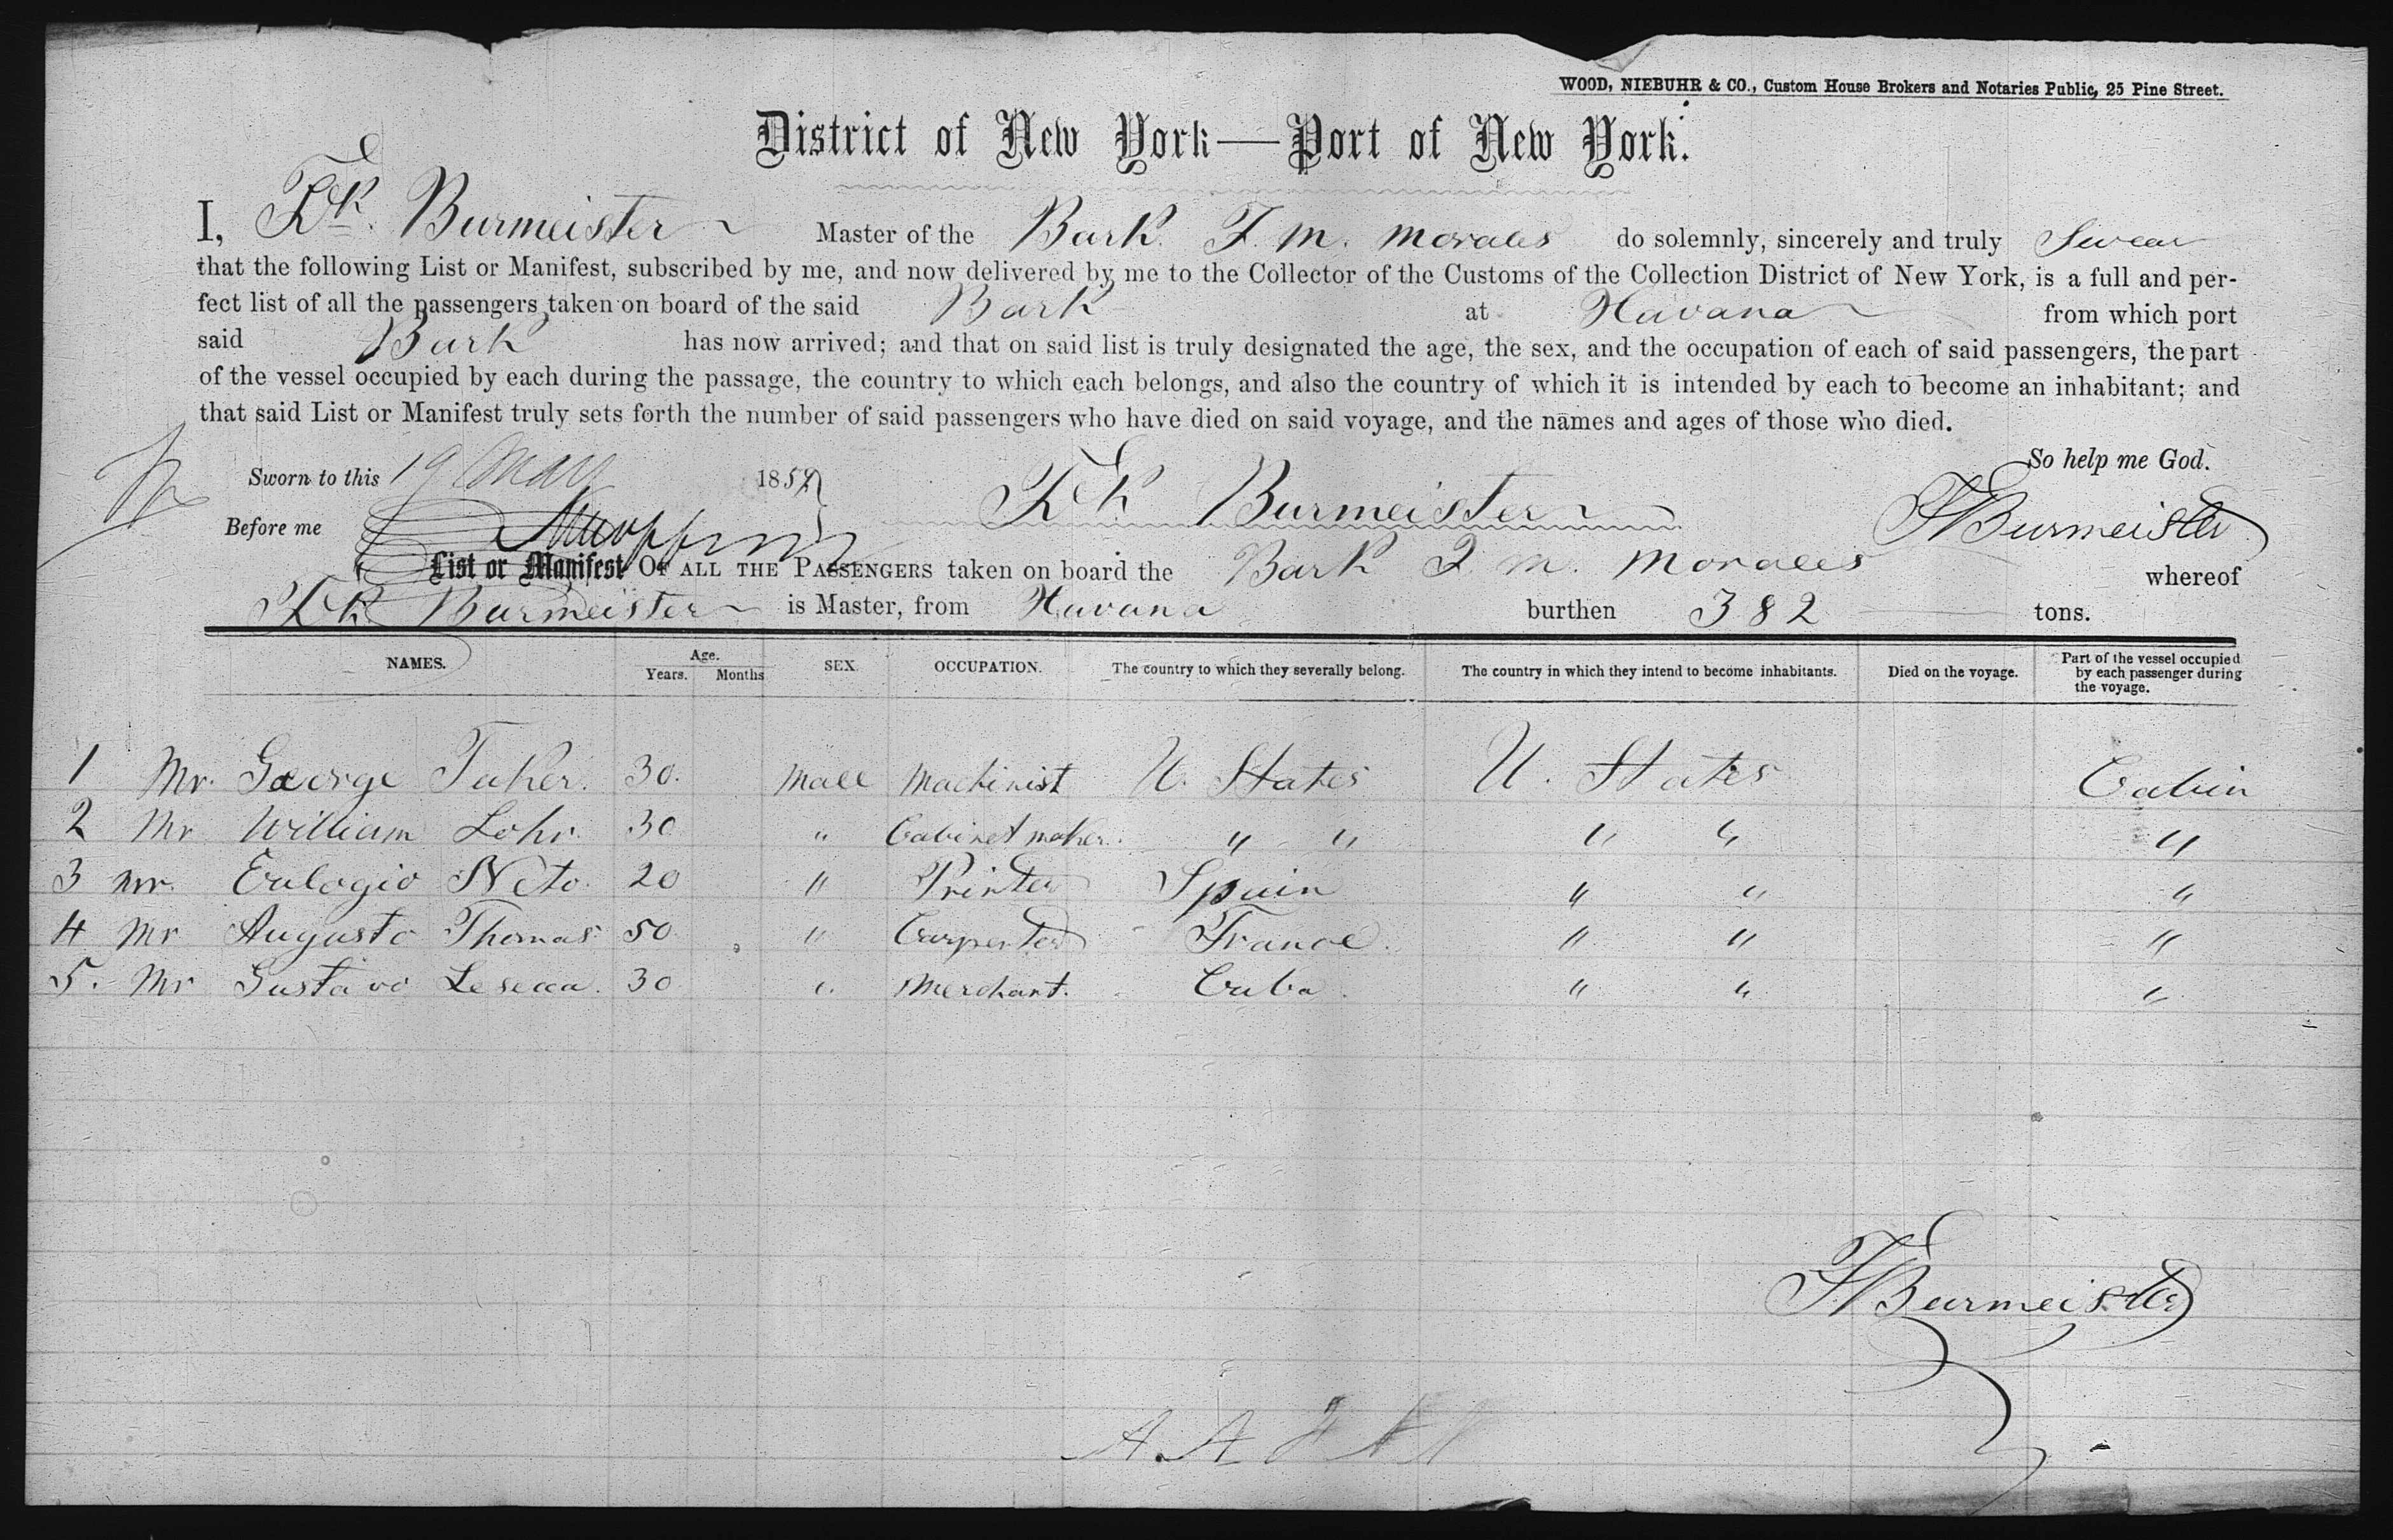 WOOD, NIEBUHR & CO., Custom House Brokers and Notaries Public, 25 Pine Street.
District of New York—Port of New York.
I, Fk. Burmeister Master of the Bark F. M. Morales do solemnly, sincerely and truly Swear
that the following List or Manifest, subscribed by me, and now delivered by me to the Collector of the Customs of the Collection District of New York, is a full and per-
fect list of all the passengers taken on board of the said Bark at Havana from which port
said Bark has now arrived; and that on said list is truly designated the age, the sex, and the occupation of each of said passengers, the part
of the vessel occupied by each during the passage, the country to which each belongs, and also the country of which it is intended by each to become an inhabitant; and
that said List or Manifest truly sets forth the number of said passengers who have died on said voyage, and the names and ages of those who died.
So help me God.
Sworn to this 19 May 185
Fk Burmeister
FBurmeister
Before me
List or Manifest OF ALL THE PASSENGERS taken on board the Bark F. M. Morales whereof
Fk Burmeister is Master, from Havana burthen 382 tons.
NAMES. Age. Years. Months SEX. OCCUPATION. The country to which they severally belong. The country in which they intend to become inhabitants. Died on the voyage. Part of the vessel occupied by each passenger during the voyage.
1 Mr. George Taker. 30. Male Machinist U. States U. States Cabin
2 Mr William Lohr. 30 " Cabinet maker. " " " " "
3 Mr. Eulogio Neto. 20 " Printer Spain " " "
4 Mr Augusto Thomas 50 " Carpenter France. " " "
5. Mr Gustavo 30 " Merchant. Cuba. " " "
FBurmeister